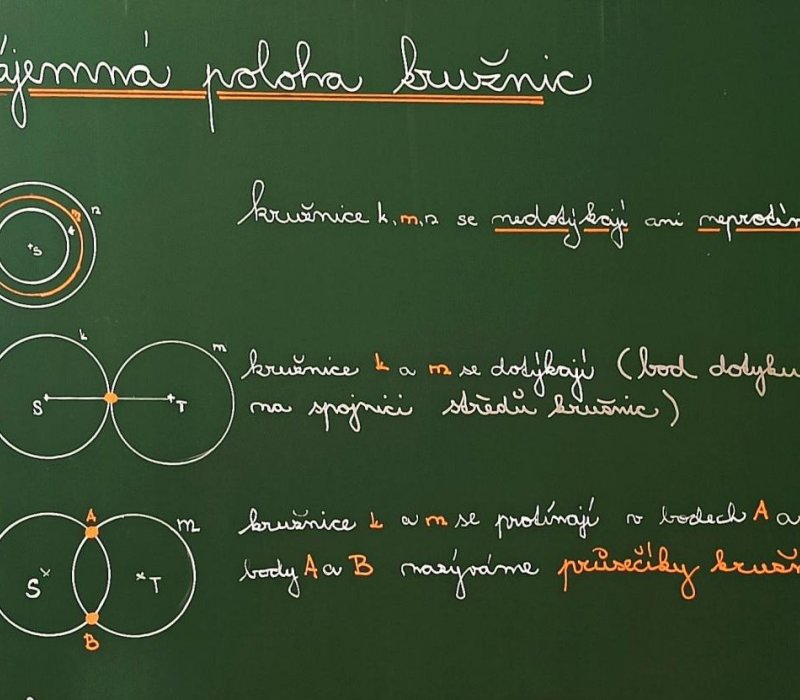 ájemná poloha kružnic
n
m
k
S
kružnice k, m, n se nedotýkají ani neprotín
k
m
S
T
kružnice k a m se dotýkají (bod dotyku
na spojnici středů kružnic)
A
m
S
T
B
kružnice k a m se protínají v bodech A a
body A a B nazýváme průsečíky kružn